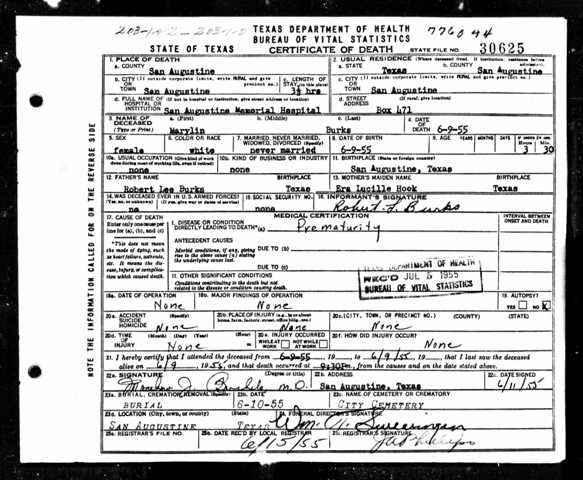 TEXAS DEPARTMENT OF HEALTH
BUREAU OF VITAL STATISTICS
STATE OF TEXAS CERTIFICATE OF DEATH STATE FILE NO. 30625
1. PLACE OF DEATH 2. USUAL RESIDENCE (Where deceased lived. If institution, residence before admission)
a. COUNTY San Augustine a. STATE Texas b. COUNTY San Augustine
b. CITY (If outside corporate limits, write RURAL and give precinct no.) OR TOWN San Augustine c. LENGTH OF STAY (in this place) 3½ hrs c. CITY (If outside corporate limits, write RURAL and give precinct no.) OR TOWN San Augustine
d. FULL NAME OF (If not in hospital or institution, give street address or location) HOSPITAL OR INSTITUTION San Augustine Memorial Hospital d. STREET ADDRESS (If rural, give location) Box 471
3. NAME OF DECEASED (Type or Print) a. (First) Marylin b. (Middle) c. (Last) Burks 4. DATE OF DEATH 6-9-55
5. SEX female 6. COLOR OR RACE white 7. MARRIED, NEVER MARRIED, WIDOWED, DIVORCED (Specify) never married 8. DATE OF BIRTH 6-9-55 9. AGE YEARS MONTHS DAYS Hours 3 Min. 30
10a. USUAL OCCUPATION (Give kind of work done during most of working life, even if retired) none 10b. KIND OF BUSINESS OR INDUSTRY none 11. BIRTHPLACE (State or foreign country) San Augustine, Texas
12. FATHER'S NAME Robert Lee Burks BIRTHPLACE Texas 13. MOTHER'S MAIDEN NAME Era Lucille Hook BIRTHPLACE Texas
14. WAS DECEASED EVER IN U.S. ARMED FORCES? (Yes, no, or unknown) (If yes, give war or dates of service) no 15. SOCIAL SECURITY NO. none 16. INFORMANT'S SIGNATURE Robert L. Burks
17. CAUSE OF DEATH MEDICAL CERTIFICATION INTERVAL BETWEEN ONSET AND DEATH
Enter only one cause per line for (a), (b), and (c)
I. DISEASE OR CONDITION DIRECTLY LEADING TO DEATH* (a) Prematurity
*This does not mean the mode of dying, such as heart failure, asthenia, etc. It means the disease, injury, or complication which caused death.
ANTECEDENT CAUSES
Morbid conditions, if any, giving rise to the above cause (a) stating the underlying cause last.
DUE TO (b)
DUE TO (c)
II. OTHER SIGNIFICANT CONDITIONS
Conditions contributing to the death but not related to the disease or condition causing death.
TEXAS DEPARTMENT OF HEALTH
REC'D JUL 5 1955
BUREAU OF VITAL STATISTICS
18a. DATE OF OPERATION None 18b. MAJOR FINDINGS OF OPERATION None 19. AUTOPSY? YES NO X
20a. ACCIDENT SUICIDE HOMICIDE (Specify) None 20b. PLACE OF INJURY (e.g., in or about home, farm, factory, street, office bldg., etc.) None 20c. (CITY, TOWN, OR PRECINCT NO.) None (COUNTY) (STATE)
20d. TIME OF INJURY (Month) (Day) (Year) (Hour) None 20e. INJURY OCCURRED WHILE AT WORK NOT WHILE AT WORK 20f. HOW DID INJURY OCCUR? None
21. I hereby certify that I attended the deceased from 6-9-55, 19 to 6/9/55, 19, that I last saw the deceased
alive on 6/9 1955, and that death occurred at 9:30P m., from the causes and on the date stated above.
22a. SIGNATURE (Degree or title) M.D. 22b. ADDRESS San Augustine, Texas 22c. DATE SIGNED 6/11/55
23a. BURIAL, CREMATION, REMOVAL (Specify) BURIAL 23b. DATE 6-10-55 23c. NAME OF CEMETERY OR CREMATORY CITY CEMETERY
23d. LOCATION (City, town, or county) SAN AUGUSTINE (State) TEXAS 24. FUNERAL DIRECTOR'S SIGNATURE
25a. REGISTRAR'S FILE NO. 25b. DATE REC'D BY LOCAL REGISTRAR 6/15/55 25c. REGISTRAR'S SIGNATURE
NOTE THE INFORMATION CALLED FOR ON THE REVERSE SIDE